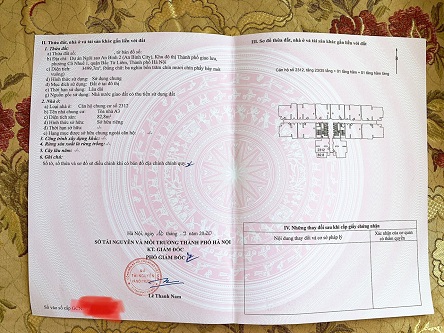 II. Thửa đất, nhà ở và tài sản khác gắn liền với đất
1. Thửa đất:
a) Thửa đất số: , tờ bản đồ số:
b) Địa chỉ: Dự án Ngôi sao An Bình 2 (An Bình City), Khu đô thị Thành phố giao lưu,
phường Cổ Nhuế 1, quận Bắc Từ Liêm, Thành phố Hà Nội
c) Diện tích:
vuông)
d) Hình thức sử dụng: Sử dụng chung
đ) Mục đích sử dụng: Đất ở tại đô thị
e) Thời hạn sử dụng: Lâu dài
g) Nguồn gốc sử dụng: Nhà nước giao đất có thu tiền sử dụng đất
2. Nhà ở:
a) Loại nhà ở: Căn hộ chung cư số 2312
b) Tên nhà chung cư: Tòa nhà A3
c) Diện tích sàn: 82,8m²
d) Hình thức sở hữu: Sở hữu riêng
đ) Thời hạn sở hữu:
e) Hạng mục được sở hữu chung ngoài căn hộ:
3. Công trình xây dựng khác:
4. Rừng sản xuất là rừng trồng:
5. Cây lâu năm:
6. Ghi chú:
Số tờ, số thửa và sơ đồ sẽ điều chỉnh khi có bản đồ địa chính chính quy
Hà Nội, ngày
SỞ TÀI NGUYÊN VÀ MÔI TRƯỜNG THÀNH PHỐ HÀ NỘI
KT. GIÁM ĐỐC
PHÓ GIÁM ĐỐC
Lê Thanh Nam
Số vào sổ cấp GCN:
III. Sơ đồ thửa đất, nhà ở và tài sản khác gắn liền với đất
Căn hộ số 2312, tầng 23/35 tầng + 01 tầng hầm + 01 tầng
IV. Những thay đổi sau khi cấp giấy chứng nhận
Nội dung thay đổi và cơ sở pháp lý
Xác nhận của cơ quan
có thẩm quyền